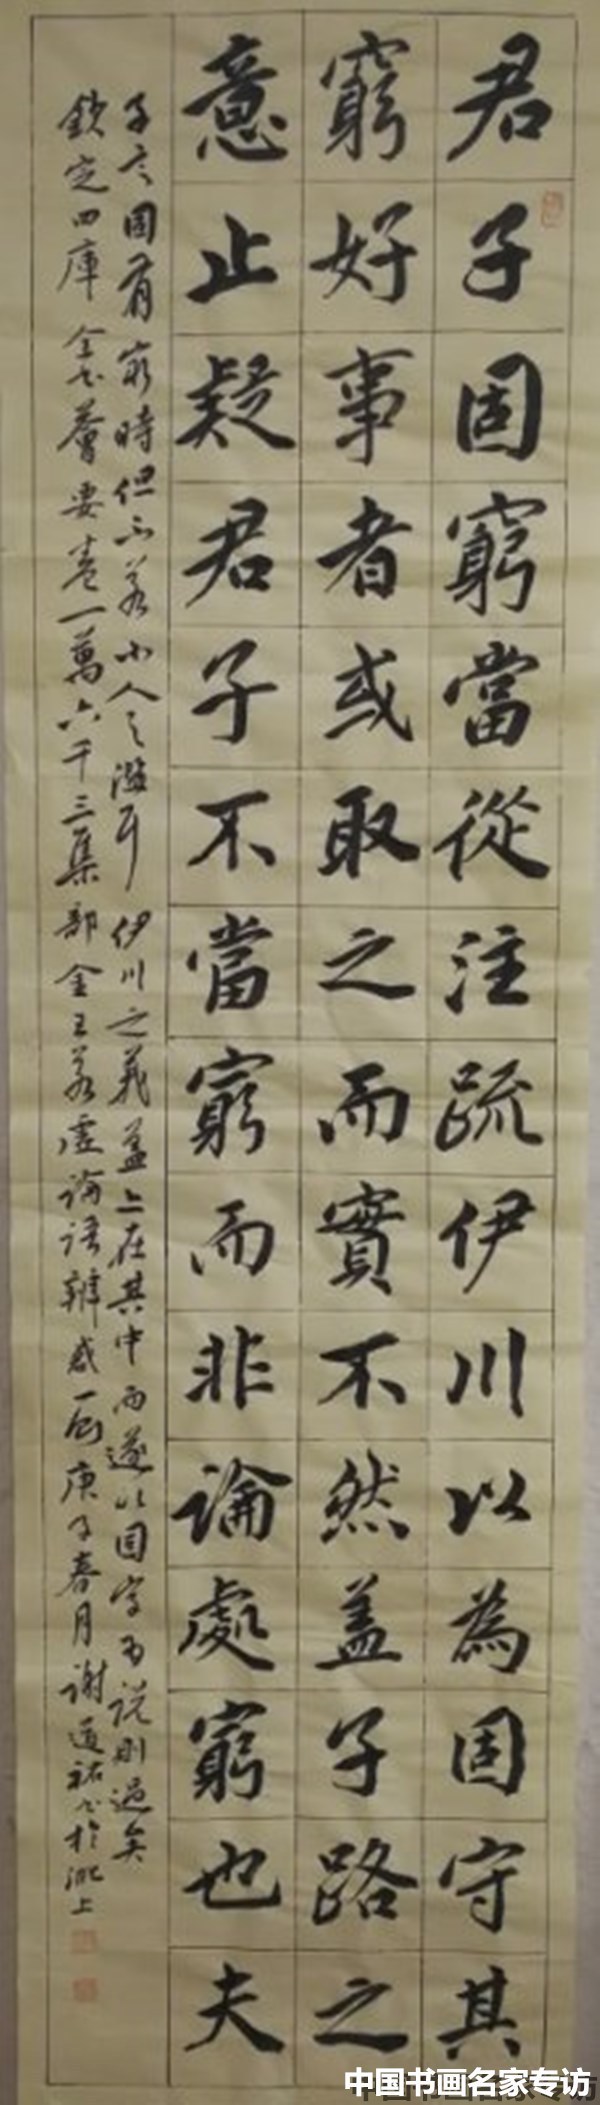 君子固窮當從注疏伊川以為固守其
窮好事者或取之而實不然盖子路之
意止疑君子不當窮而非論處窮也夫
子言固有窮時但不若小人之濫耳伊川之義盖亦在其中而遂以固字為說則過矣
欽定四庫全書薈要卷一萬六千三集部金王若虛論語辨惑一則庚子春月謝道祐書於淝上
中国书画名家专访